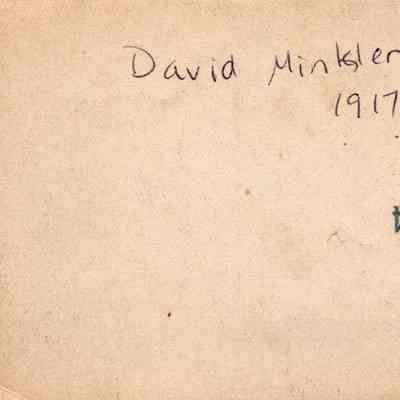 David Minkler
1917